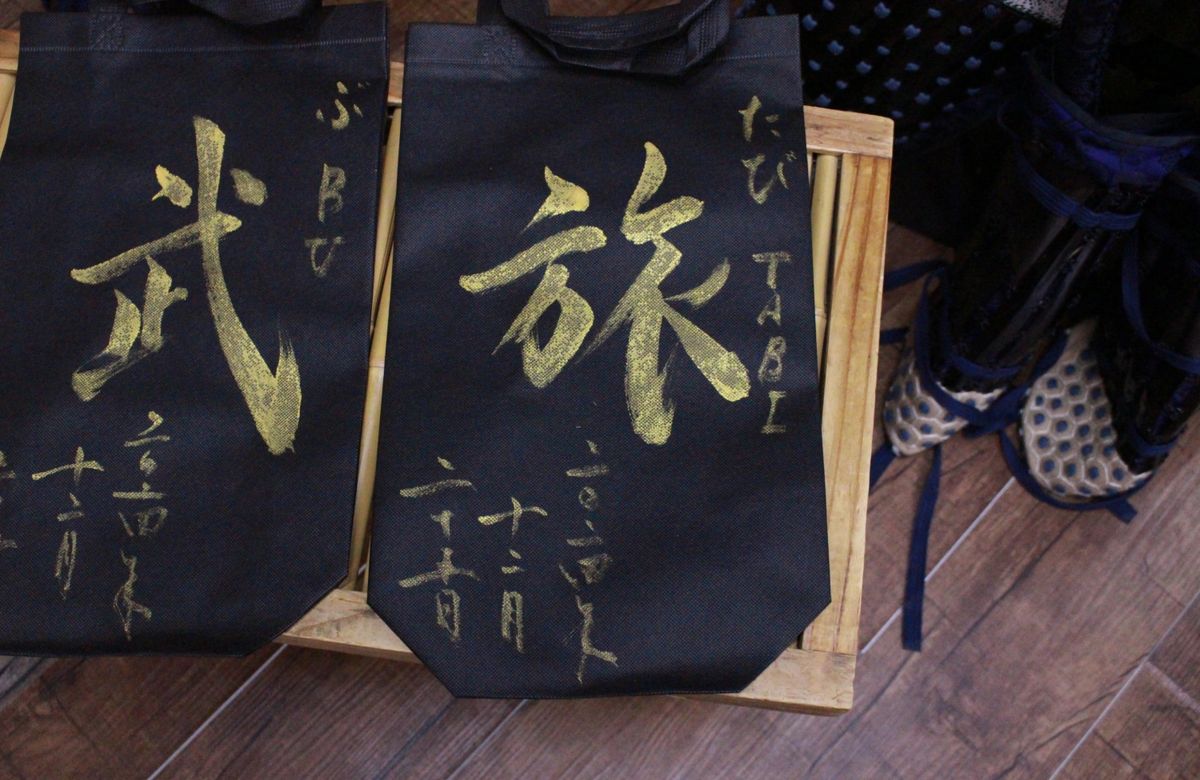 ぶ BU
武
二〇二四年
十二月
たび TABI
旅
二〇二四年
十二月
二十日